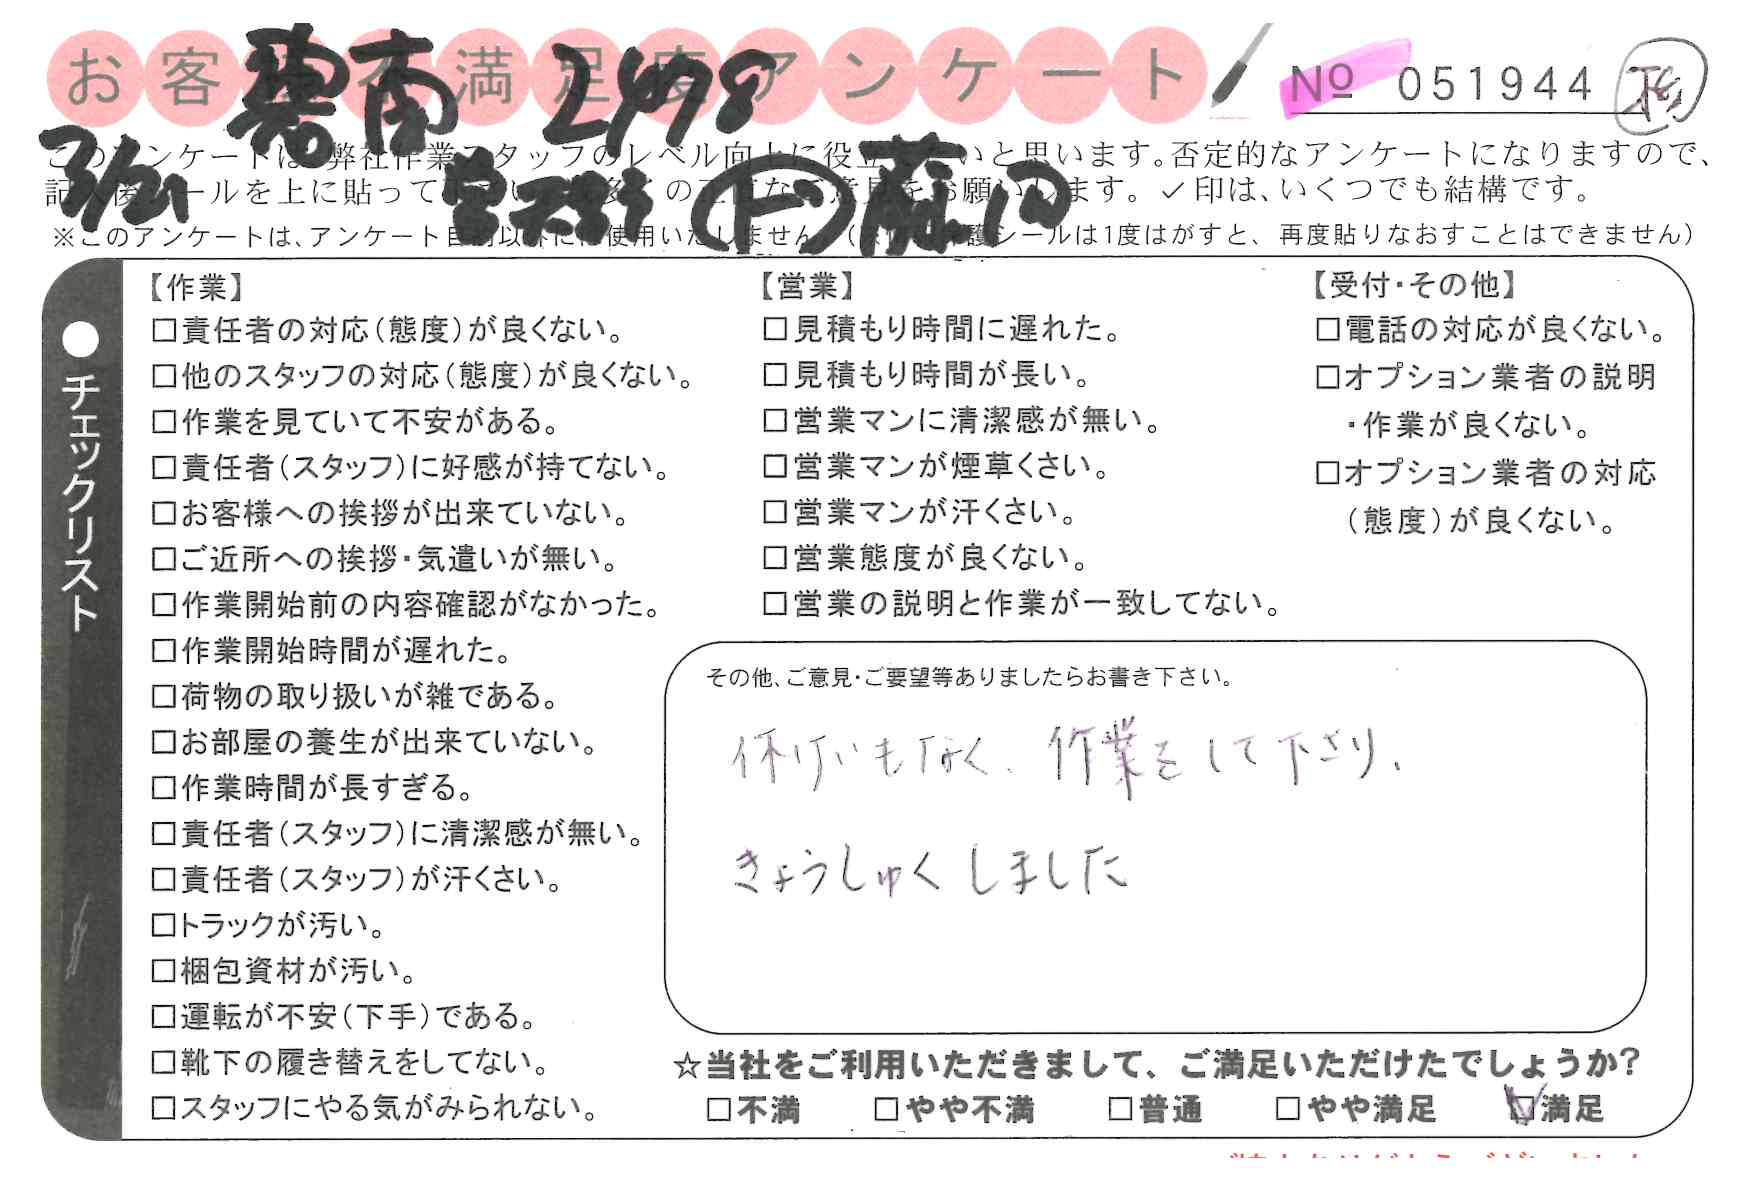 お客様不満足度アンケート
碧南 2498
No 051944
このアンケートは、弊社作業スタッフのレベル向上に役立てたいと思います。否定的なアンケートになりますので、
3/21
記入後シールを上に貼って下さい。数多くの正直なご意見をお願いします。✓印は、いくつでも結構です。
※このアンケートは、アンケート目的以外には使用いたしません。(※情報保護シールは1度はがすと、再度貼りなおすことはできません)
●チェックリスト
【作業】
□責任者の対応(態度)が良くない。
□他のスタッフの対応(態度)が良くない。
□作業を見ていて不安がある。
□責任者(スタッフ)に好感が持てない。
□お客様への挨拶が出来ていない。
□ご近所への挨拶・気遣いが無い。
□作業開始前の内容確認がなかった。
□作業開始時間が遅れた。
□荷物の取り扱いが雑である。
□お部屋の養生が出来ていない。
□作業時間が長すぎる。
□責任者(スタッフ)に清潔感が無い。
□責任者(スタッフ)が汗くさい。
□トラックが汚い。
□梱包資材が汚い。
□運転が不安(下手)である。
□靴下の履き替えをしてない。
□スタッフにやる気がみられない。
【営業】
□見積もり時間に遅れた。
□見積もり時間が長い。
□営業マンに清潔感が無い。
□営業マンが煙草くさい。
□営業マンが汗くさい。
□営業態度が良くない。
□営業の説明と作業が一致してない。
【受付・その他】
□電話の対応が良くない。
□オプション業者の説明
・作業が良くない。
□オプション業者の対応
(態度)が良くない。
その他、ご意見・ご要望等ありましたらお書き下さい。
休けいもなく、作業をして下さり、
きょうしゅくしました
☆当社をご利用いただきまして、ご満足いただけたでしょうか?
□不満 □やや不満 □普通 □やや満足 ☑満足